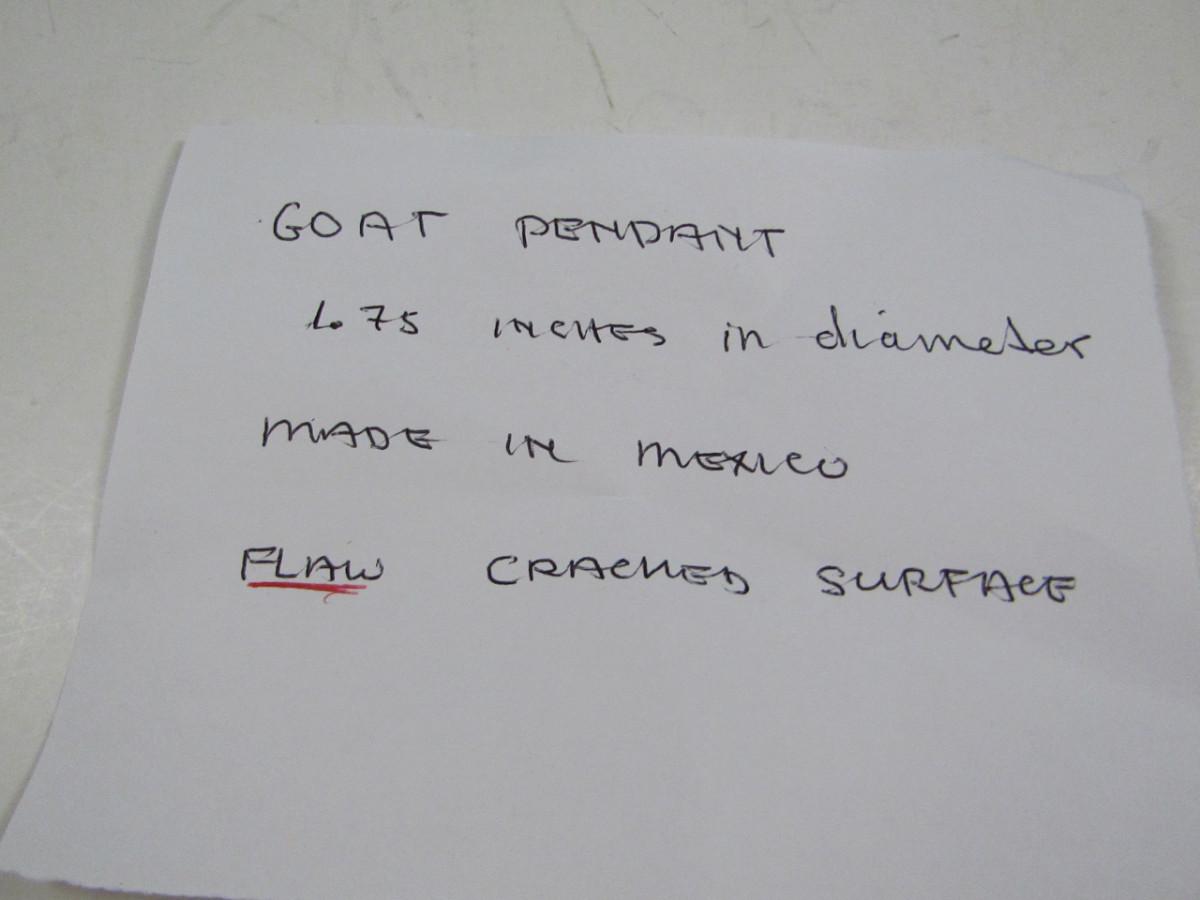 GOAT PENDANT
1.75 INCHES in diameter
MADE IN MEXICO
FLAW CRACKED SURFACE